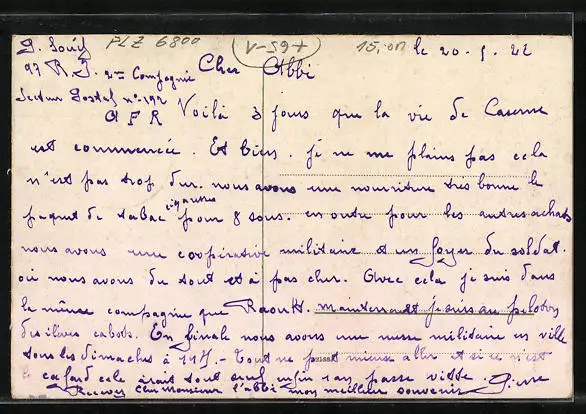 PLZ 6800
V-59+
15,00
le 20-5.22
97 R.I. 2me Compagnie
Cher Abbé
Secteur Postal no 192
A F R
Voilà 3 jours que la vie de Caserne
est commencée. Et bien. je ne me plains pas cela
n'est pas trop dur. nous avons une nourriture très bonne le
paquet de tabac cigarettes pour 8 sous. en outre pour les autres achats
nous avons une coopérative militaire et un foyer du soldat.
où nous avons du tout et à pas cher. Avec cela je suis dans
la même compagnie que Raoult. maintenant je suis au peloton
des élèves cabots. En finale nous avons une messe militaire en ville
tous les dimaches à 11H. - Tout ne peut mieux aller et si ce n'est
le cafard cela irait tout seul enfin 1 an passe vitte. Pierre
Recevez cher monsieur l'abbé mon meilleur souvenir